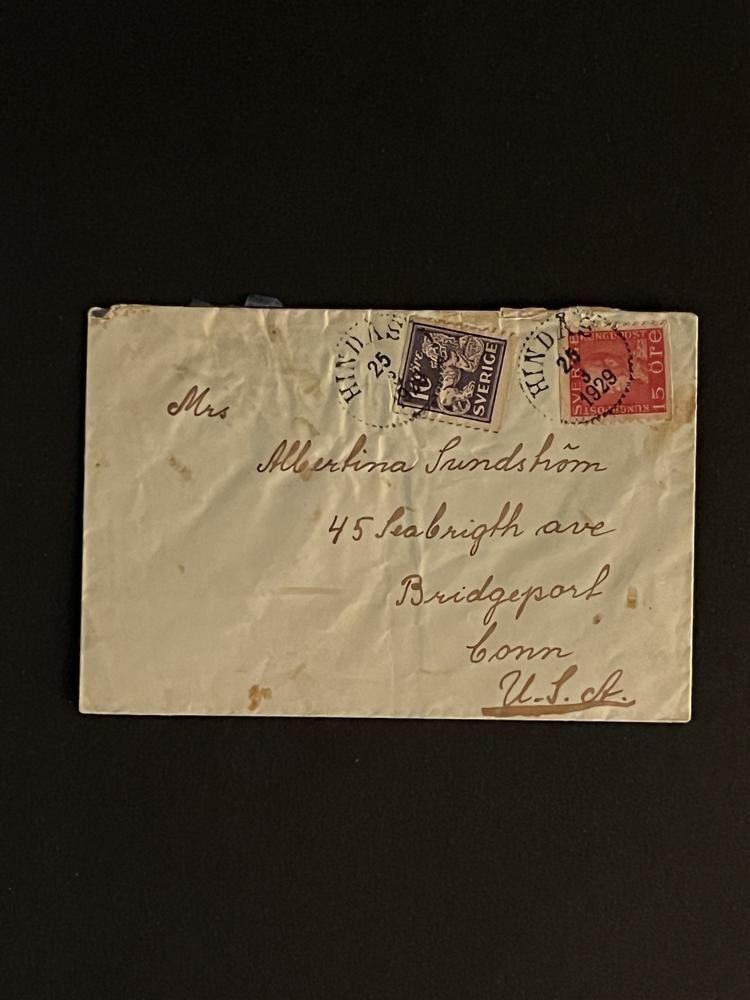 HINDÅS
25
3
10 öre
SVERIGE
HINDÅS
25
3
1929
SVERIGE
KUNGL POST
15 öre
Mrs
Albertina Sundström
45 Seabrigth ave
Bridgeport
Conn
U.S.A.